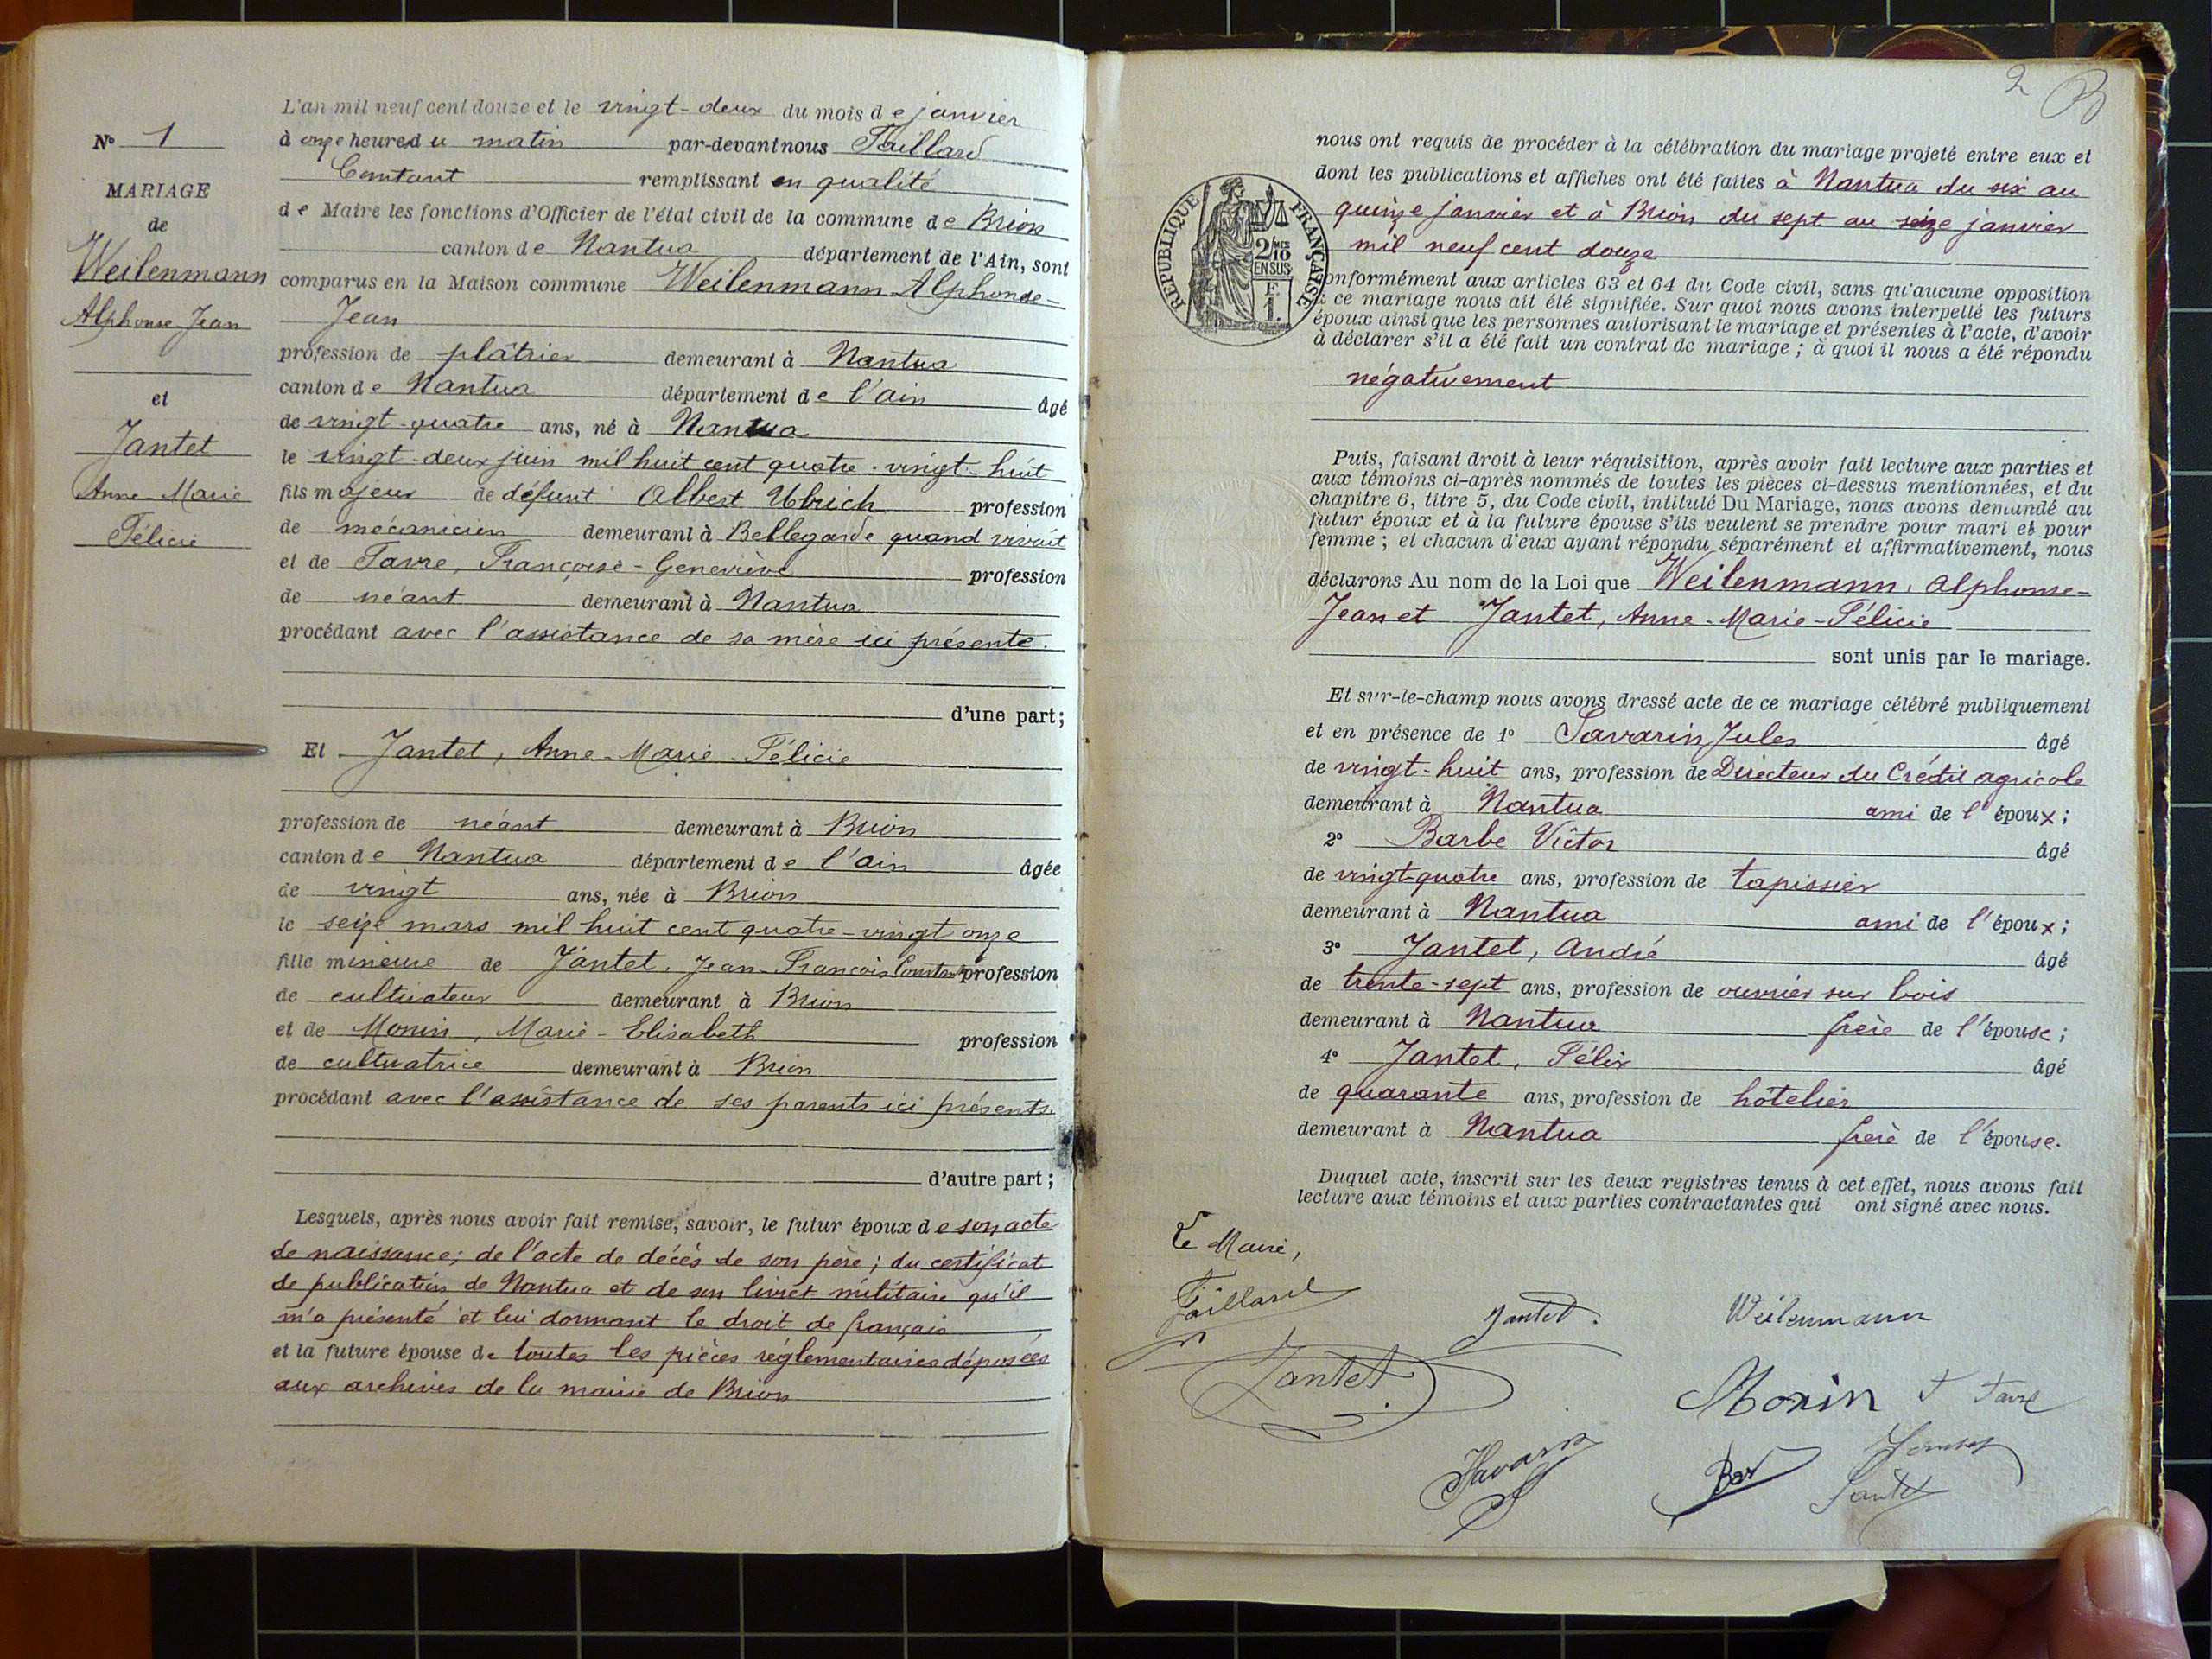 L'an mil neuf cent douze et le vingt-deux du mois de janvier
N° 1
à onze heures du matin par-devant nous Taillard
Constant remplissant en qualité
MARIAGE
de Maire les fonctions d'Officier de l'état civil de la commune de Brion
de
canton de Nantua département de l'Ain, sont
Weilenmann
comparus en la Maison commune Weilenmann Alphonse-
Alphonse Jean
Jean
profession de plâtrier demeurant à Nantua
et
canton de Nantua département de l'ain âgé
de vingt-quatre ans, né à Nantua
Jantet
le vingt-deux juin mil huit cent quatre-vingt-huit
Anne-Marie
fils majeur de défunt Albert Ulrich profession
Félicie
de mécanicien demeurant à Bellegarde quand vivait
et de Tavre, Françoise-Geneviève profession
de néant demeurant à Nantua
procédant avec l'assistance de sa mère ici présente.
d'une part;
Et Jantet, Anne-Marie-Félicie
profession de néant demeurant à Brion
canton de Nantua département de l'ain âgée
de vingt ans, née à Brion
le seize mars mil huit cent quatre-vingt onze
fille mineure de Jantet, Jean-François Constant profession
de cultivateur demeurant à Brion
et de Monin, Marie-Elisabeth profession
de cultivatrice demeurant à Brion
procédant avec l'assistance de ses parents ici présents.
d'autre part;
Lesquels, après nous avoir fait remise, savoir, le futur époux de son acte
de naissance; de l'acte de décès de son père; du certificat
de publication de Nantua et de son livret militaire qu'il
m'a présenté et lui donnant le droit de français
et la future épouse de toutes les pièces réglementaires déposées
aux archives de la mairie de Brion
2
nous ont requis de procéder à la célébration du mariage projeté entre eux et
dont les publications et affiches ont été faites à Nantua du six au
quinze janvier et à Brion du sept au seize janvier
mil neuf cent douze
RÉPUBLIQUE FRANÇAISE
2/10 EN SUS
F. 1.
conformément aux articles 63 et 64 du Code civil, sans qu'aucune opposition
à ce mariage nous ait été signifiée. Sur quoi nous avons interpellé les futurs
époux ainsi que les personnes autorisant le mariage et présentes à l'acte, d'avoir
à déclarer s'il a été fait un contrat de mariage; à quoi il nous a été répondu
négativement
Puis, faisant droit à leur réquisition, après avoir fait lecture aux parties et
aux témoins ci-après nommés de toutes les pièces ci-dessus mentionnées, et du
chapitre 6, titre 5, du Code civil, intitulé Du Mariage, nous avons demandé au
futur époux et à la future épouse s'ils veulent se prendre pour mari et pour
femme; et chacun d'eux ayant répondu séparément et affirmativement, nous
déclarons Au nom de la Loi que Weilenmann, Alphonse-
Jean et Jantet, Anne-Marie-Félicie
sont unis par le mariage.
Et sur-le-champ nous avons dressé acte de ce mariage célébré publiquement
et en présence de 1° Savarin Jules âgé
de vingt-huit ans, profession de Directeur du Crédit agricole
demeurant à Nantua ami de l'époux;
2° Barbe Victor âgé
de vingt-quatre ans, profession de tapissier
demeurant à Nantua ami de l'époux;
3° Jantet, André âgé
de trente-sept ans, profession de ouvrier sur bois
demeurant à Nantua frère de l'épouse;
4° Jantet, Félix âgé
de quarante ans, profession de hôtelier
demeurant à Nantua frère de l'épouse.
Duquel acte, inscrit sur les deux registres tenus à cet effet, nous avons fait
lecture aux témoins et aux parties contractantes qui ont signé avec nous.
Le Maire,
Taillard
Jantet.
Weilenmann
Jantet
Monin
F Tavre
Savarin
Jantet
Jantet